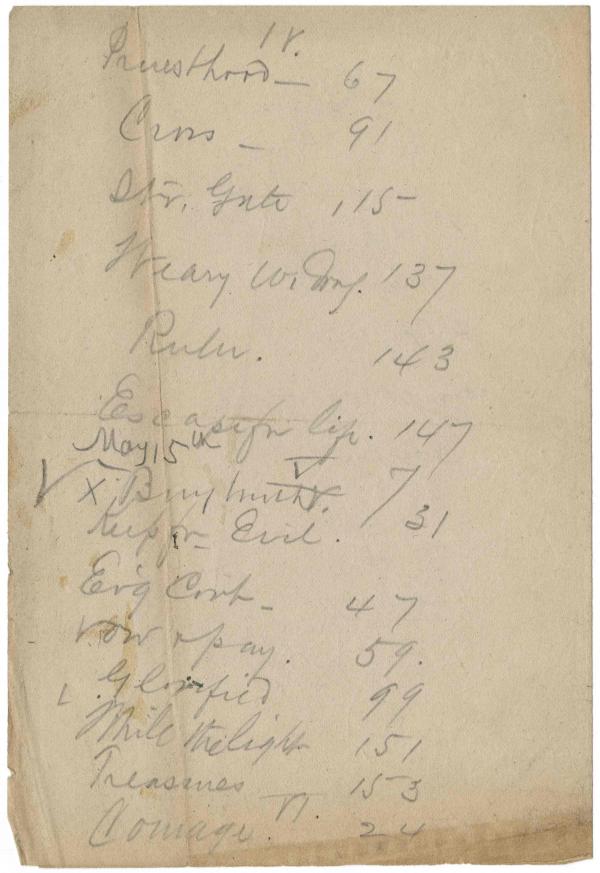 IV.
Priesthood — 67
Cross — 91
Str. Gate 115
Weary w. 137
Ruler. 143
Escape for life. 147
May 15th
V
√ X Buy truth 7
Keep fr. Evil. 31
47
Vow & pay. 59.
Glorified 99
While the light 151
Treasures 153
VI
Courage. 24